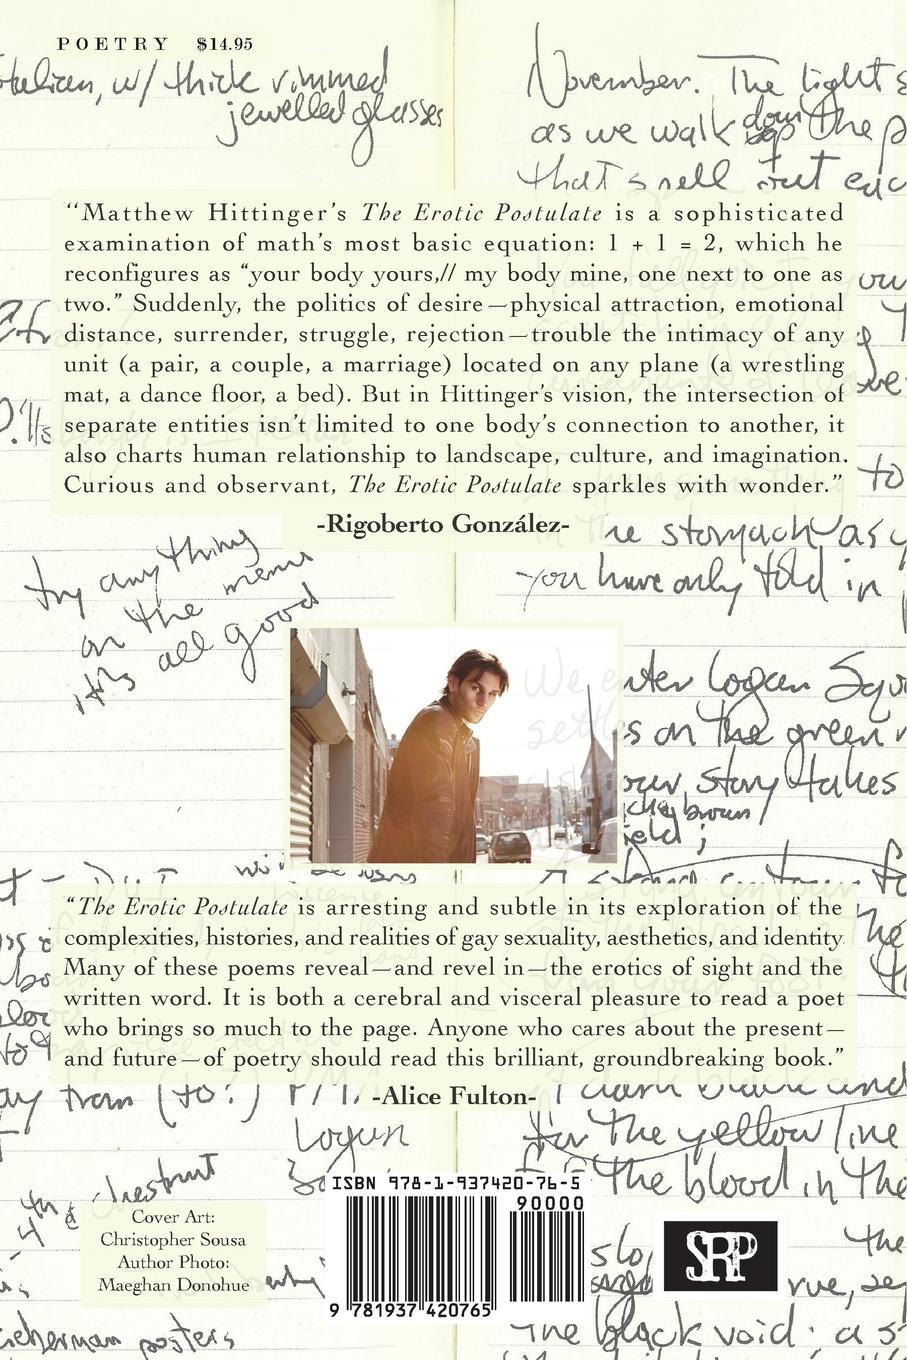 POETRY $14.95
w/ thick rimmed
jewelled glasses
November. The light
as we walk down the
that spell out
“Matthew Hittinger’s The Erotic Postulate is a sophisticated
examination of math’s most basic equation: 1 + 1 = 2, which he
reconfigures as “your body yours,// my body mine, one next to one as
two.” Suddenly, the politics of desire—physical attraction, emotional
distance, surrender, struggle, rejection—trouble the intimacy of any
unit (a pair, a couple, a marriage) located on any plane (a wrestling
mat, a dance floor, a bed). But in Hittinger’s vision, the intersection of
separate entities isn’t limited to one body’s connection to another, it
also charts human relationship to landscape, culture, and imagination.
Curious and observant, The Erotic Postulate sparkles with wonder.”
-Rigoberto González-
to
stomach as
you have only told in
try anything
on the menu
it's all good
We enter Logan
settles on the green
our story takes
brown/
field;
“The Erotic Postulate is arresting and subtle in its exploration of the
complexities, histories, and realities of gay sexuality, aesthetics, and identity.
Many of these poems reveal—and revel in—the erotics of sight and the
written word. It is both a cerebral and visceral pleasure to read a poet
who brings so much to the page. Anyone who cares about the present—
and future—of poetry should read this brilliant, groundbreaking book.”
-Alice Fulton-
from (to?)
dark black and
for the yellow line
the blood in the
Logan
chestnut
Cover Art:
Christopher Sousa
Author Photo:
Maeghan Donohue
ISBN 978-1-937420-76-5
90000
9 781937 420765
SRP
the
posters
the black void: a